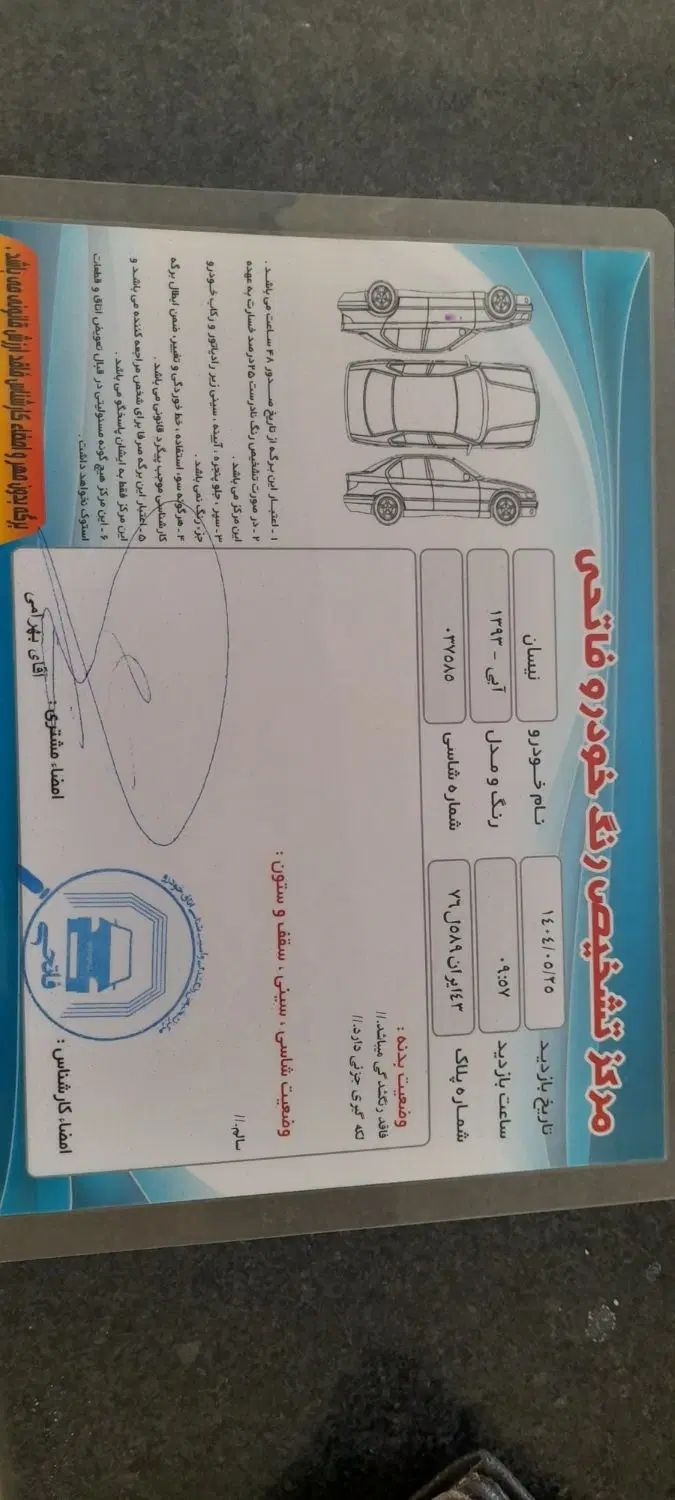 مرکز تشخیص رنگ خودرو فاتحی
تاریخ بازدید ۱۴۰۴/۰۵/۲۵
نام خودرو نیسان
ساعت بازدید ۰۹:۵۷
رنگ و مدل آبی - ۱۳۹۳
شماره پلاک ۴۳ایران۵۸۹ل۷۶
شماره شاسی ۰۳۷۵۸۵
وضعیت بدنه :
فاقد رنگشدگی میباشد.//
لکه گیری جزئی دارد.//
وضعیت شاسی ، سینی ، سقف و ستون :
سالم.//
۱- اعتبار این برگه از تاریخ صدور ۴۸ ساعت می باشد .
۲- در صورت تشخیص رنگ نادرست ۲۵درصد خسارت به عهده
این مرکز می باشد .
۳- سپر ، جلو پنجره ، آیینه ، سینی زیر رادیاتور و رکاب خودرو
جزء رنگ نمی باشد .
۴- هرگونه سوء استفاده ، خط خوردگی و تغییر، ضمن ابطال برگه
کارشناسی موجب پیگرد قانونی می باشد .
۵- اعتبار این برگه صرفا برای شخص مراجعه کننده می باشد و
این مرکز فقط به ایشان پاسخگو می باشد .
۶- این مرکز هیچ گونه مسئولیتی در قبال تعویض اتاق و قطعات
استوک نخواهد داشت .
امضاء کارشناس :
فاتحی
امضاء مشتری :
آقای بهرامی
برگه بدون مهر و امضاء کارشناس فاقد ارزش قانونی می باشد .